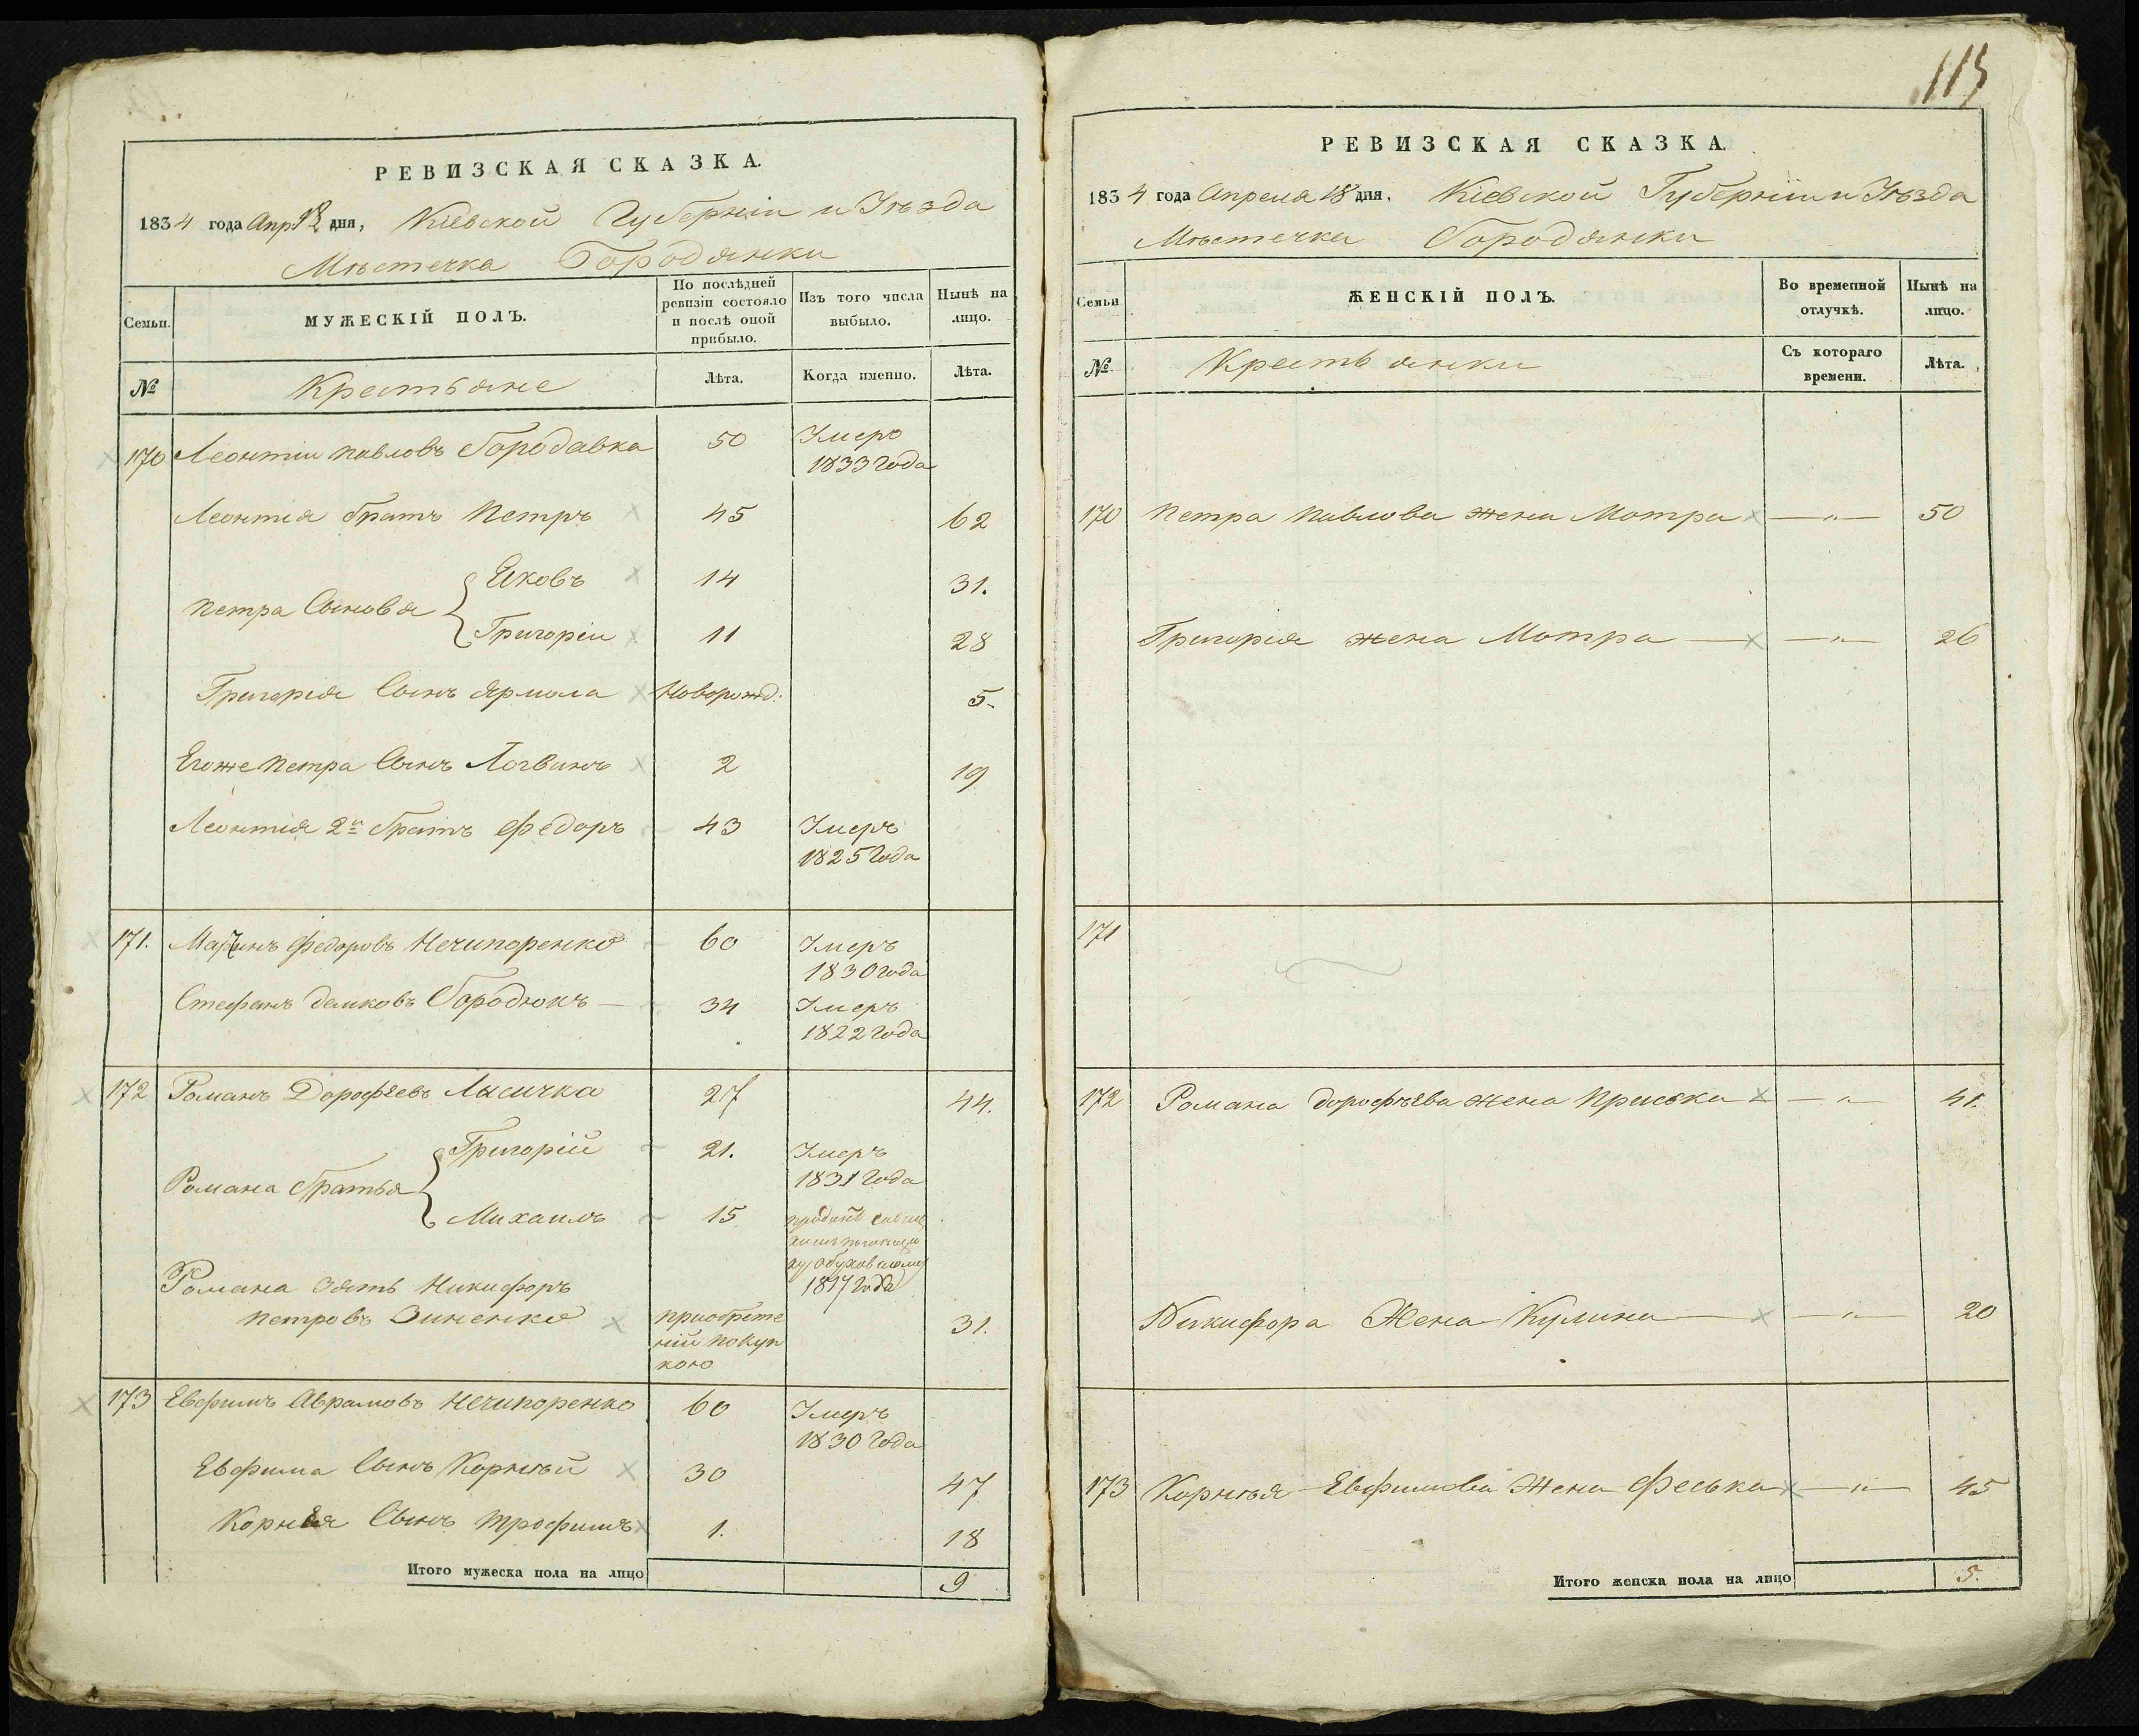 115
РЕВИЗСКАЯ СКАЗКА.
1834 года Апр 18 дня, Кіевской Губерніи и Уѣзда
Мѣстечка Бородянки
Семьи.
МУЖЕСКІЙ ПОЛЪ.
По послѣдней ревизіи состояло и послѣ оной прибыло.
Изъ того числа выбыло.
Нынѣ на лицо.
№
Крестьяне
Лѣта.
Когда именно.
Лѣта.
170 Леонтій Павловъ Бородавка 50 Умеръ
1833 года
Леонтія братъ Петръ 45 62
Петра Сыновья
Яковъ 14 31.
Григорій 11 28
Григорія Сынъ Ярмола Новорожд: 5.
Егоже Петра Сынъ Логвинъ 2 19
Леонтія 2й братъ Федоръ 43 Умеръ
1825 года
171. Федоровъ Нечипоренко 60 Умеръ
1830 года
Стефанъ Бородюкъ 34 Умеръ
1822 года
172 Романъ Дорофѣевъ Лысичка 27 44.
Романа братья
Григорій 21. Умеръ
1831 года
Михаилъ 15
1817 года
Романа зять Никифоръ
Петровъ Зиненко 31.
приобрете
ній покуп
кою
173 Евфимъ Аврамовъ Нечипоренко 60 Умеръ
1830 года
Евфима Сынъ Корнѣй 30 47
Корнѣя Сынъ Трофимъ 1. 18
Итого мужеска пола на лицо 9
РЕВИЗСКАЯ СКАЗКА.
1834 года Апреля 18 дня, Кіевской Губерніи и Уѣзда
Мѣстечка Бородянки
Семьи
ЖЕНСКІЙ ПОЛЪ.
Во временной отлучкѣ.
Нынѣ на лицо.
№
Крестьянки
Съ котораго времени.
Лѣта.
170 Петра Павлова жена Мотра — " — 50
Григорія жена Мотра — " — 26
171
172 Романа Дорофѣева жена Приська — " — 41.
Никифора Жена Кулина — " — 20
173 Корнѣя Евфимова Жена Феська — " — 45
Итого женска пола на лицо 5.